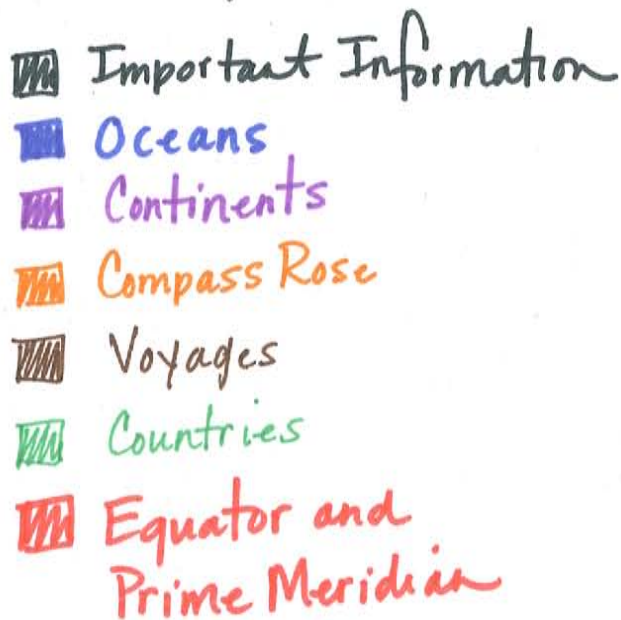 Important Information
Oceans
Continents
Compass Rose
Voyages
Countries
Equator and
Prime Meridian